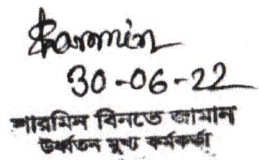 Sharmin
30-06-22
শারমিন বিনতে জামান
উর্ধ্বতন মুখ্য কর্মকর্তা